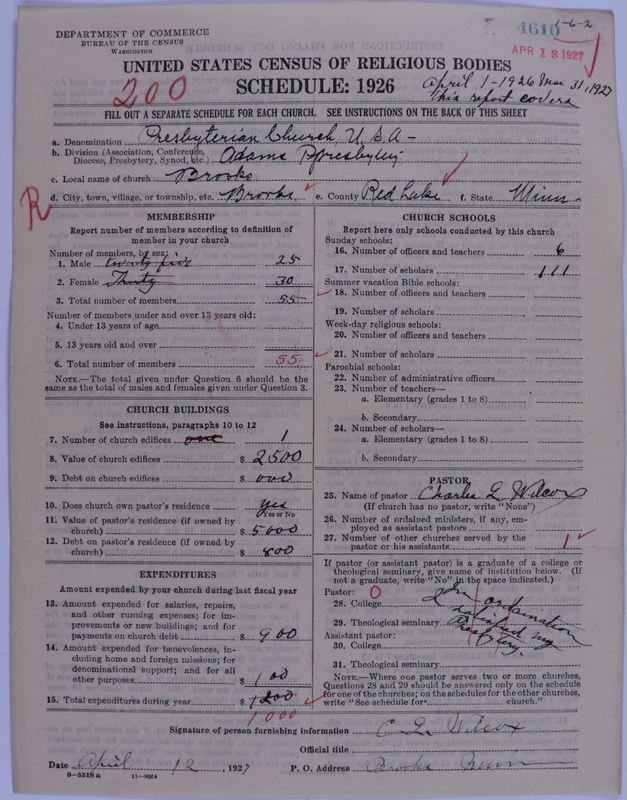 DEPARTMENT OF COMMERCE
BUREAU OF THE CENSUS
WASHINGTON
4610
1-6-2
APR 13 1927
UNITED STATES CENSUS OF RELIGIOUS BODIES
SCHEDULE: 1926
200
April 1-1926 Mar 31, 1927
this report covers
FILL OUT A SEPARATE SCHEDULE FOR EACH CHURCH. SEE INSTRUCTIONS ON THE BACK OF THIS SHEET
a. Denomination Presbyterian Church, U.S.A-
b. Division (Association, Conference, Diocese, Presbytery, Synod, etc.) Adams Presbytery
c. Local name of church Brooks
R
d. City, town, village, or township, etc. Brooks e. County Red Lake f. State Minn-
MEMBERSHIP
Report number of members according to definition of
member in your church
Number of members, by sex:
1. Male twenty five 25
2. Female Thirty 30
3. Total number of members 55
Number of members under and over 13 years old:
4. Under 13 years of age
5. 13 years old and over
6. Total number of members 55
NOTE.—The total given under Question 6 should be the
same as the total of males and females given under Question 3.
CHURCH BUILDINGS
See instructions, paragraphs 10 to 12
7. Number of church edifices one 1
8. Value of church edifices $ 2500
9. Debt on church edifices $ 000
10. Does church own pastor's residence? yes
Yes or No
11. Value of pastor's residence (if owned by
church) $ 5000
12. Debt on pastor's residence (if owned by
church) $ 800
EXPENDITURES
Amount expended by your church during last fiscal year
13. Amount expended for salaries, repairs,
and other running expenses; for im-
provements or new buildings; and for
payments on church debt $ 900
14. Amount expended for benevolences, in-
cluding home and foreign missions; for
denominational support; and for all
other purposes $ 100
15. Total expenditures during year $ 1200
1000
CHURCH SCHOOLS
Report here only schools conducted by this church
Sunday schools:
16. Number of officers and teachers 6
17. Number of scholars 111
Summer vacation Bible schools:
18. Number of officers and teachers
19. Number of scholars
Week-day religious schools:
20. Number of officers and teachers
21. Number of scholars
Parochial schools:
22. Number of administrative officers
23. Number of teachers—
a. Elementary (grades 1 to 8)
b. Secondary
24. Number of scholars—
a. Elementary (grades 1 to 8)
b. Secondary
PASTOR
25. Name of pastor Charles L Wilcox
(If church has no pastor, write "None")
26. Number of ordained ministers, if any, em-
ployed as assistant pastors
27. Number of other churches served by the
pastor or his assistants 1
If pastor (or assistant pastor) is a graduate of a college or
theological seminary, give name of institution below. (If
not a graduate, write "No" in the space indicated.)
Pastor: O
28. College
29. Theological seminary
ordamation
Presbytery.
Assistant pastor:
30. College
31. Theological seminary
NOTE.—Where one pastor serves two or more churches,
Questions 28 and 29 should be answered only on the schedule
for one of the churches; on the schedules for the other churches,
write "See schedule for church."
Signature of person furnishing information C L Wilcox
Official title
Date April 12, 1927 P. O. Address Brooks Minn
8-5518a 11-9664